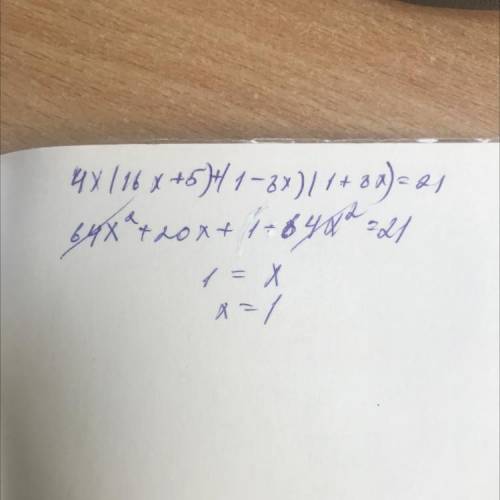 4x(16x+5)+(1-8x)(1+8x)=21
64x²+20x+1-64x²=21
1 = x
x = 1